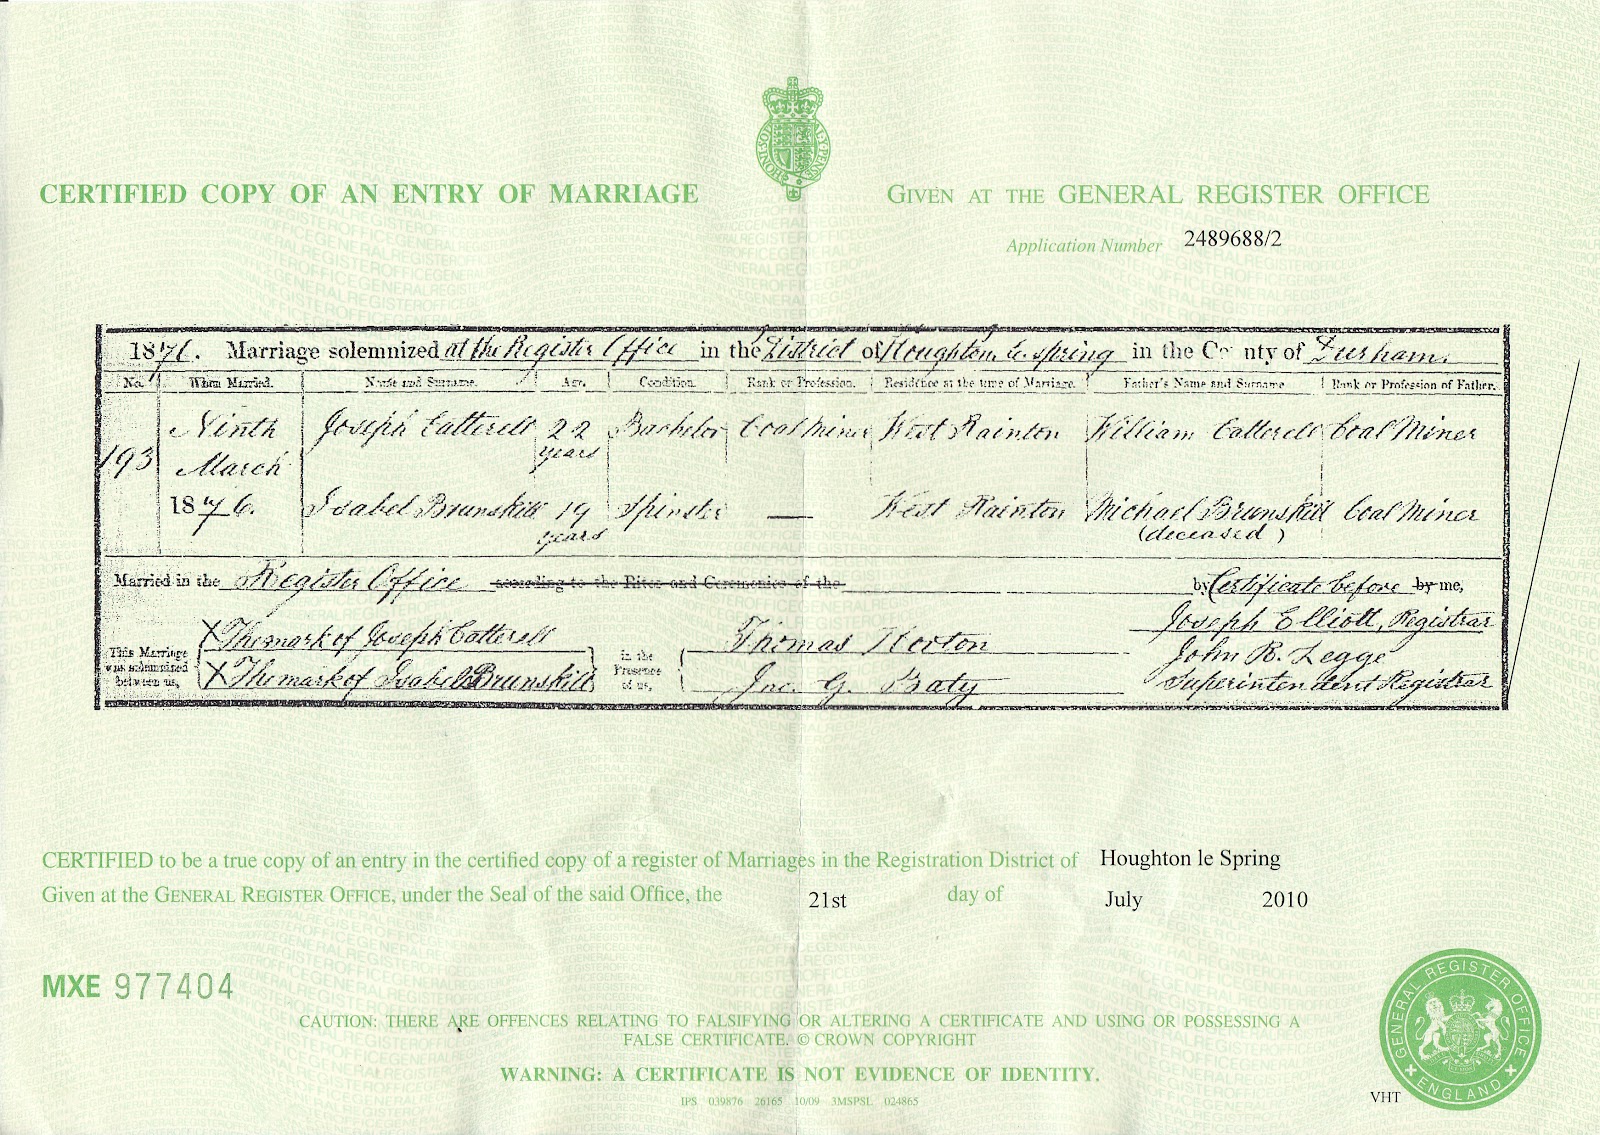 CERTIFIED COPY OF AN ENTRY OF MARRIAGE
GIVEN AT THE GENERAL REGISTER OFFICE
Application Number 2489688/2
1876. Marriage solemnized at the Register Office in the District of Houghton le Spring in the County of Durham.
No. When Married. Name and Surname. Age. Condition. Rank or Profession. Residence at the time of Marriage. Father's Name and Surname Rank or Profession of Father.
193 Ninth March 1876. Joseph Catterell 22 years Bachelor Coal Miner West Rainton William Catterell Coal Miner
Isabel Brunskill 19 years Spinster — West Rainton Michael Brunskill (deceased) Coal Miner
Married in the Register Office according to the Rites and Ceremonies of the by Certificate before by me,
This Marriage was solemnized between us, X The mark of Joseph Catterell
X The mark of Isabel Brunskill
in the Presence of us, Thomas Horton
Jno. G. Baty
Joseph Elliott, Registrar
John R. Legge
Superintendent Registrar
CERTIFIED to be a true copy of an entry in the certified copy of a register of Marriages in the Registration District of Houghton le Spring
Given at the GENERAL REGISTER OFFICE, under the Seal of the said Office, the 21st day of July 2010
MXE 977404
CAUTION: THERE ARE OFFENCES RELATING TO FALSIFYING OR ALTERING A CERTIFICATE AND USING OR POSSESSING A
FALSE CERTIFICATE. © CROWN COPYRIGHT
WARNING: A CERTIFICATE IS NOT EVIDENCE OF IDENTITY.
IPS 039876 26165 10/09 3MSPSL 024865
VHT
GENERAL REGISTER OFFICE
ENGLAND